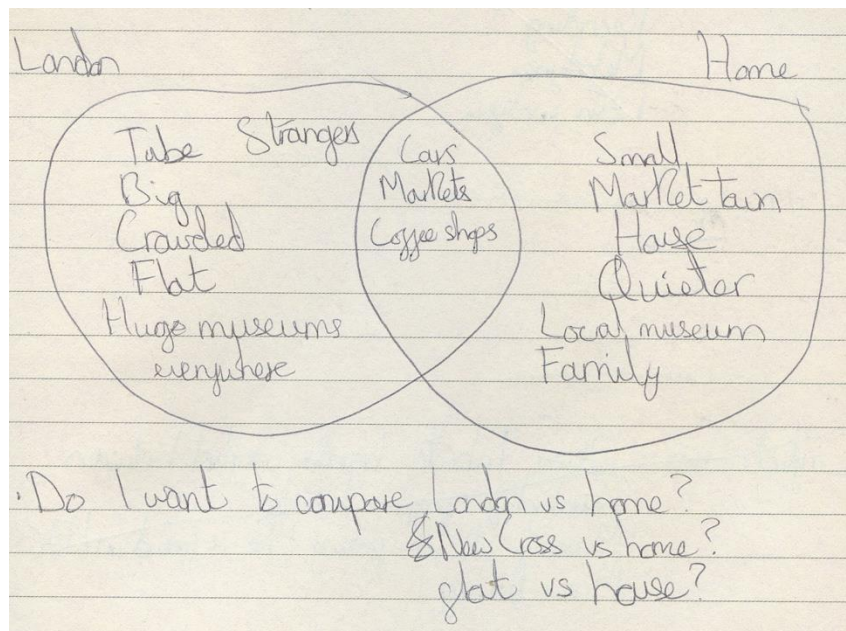 London
Home
Tube Strangers
Big
Crowded
Flat
Huge museums
everywhere
Cars
Markets
Coffee shops
Small
Market town
House
Quieter
Local museum
Family
. Do I want to compare London vs home?
& New Cross vs home?
flat vs house?